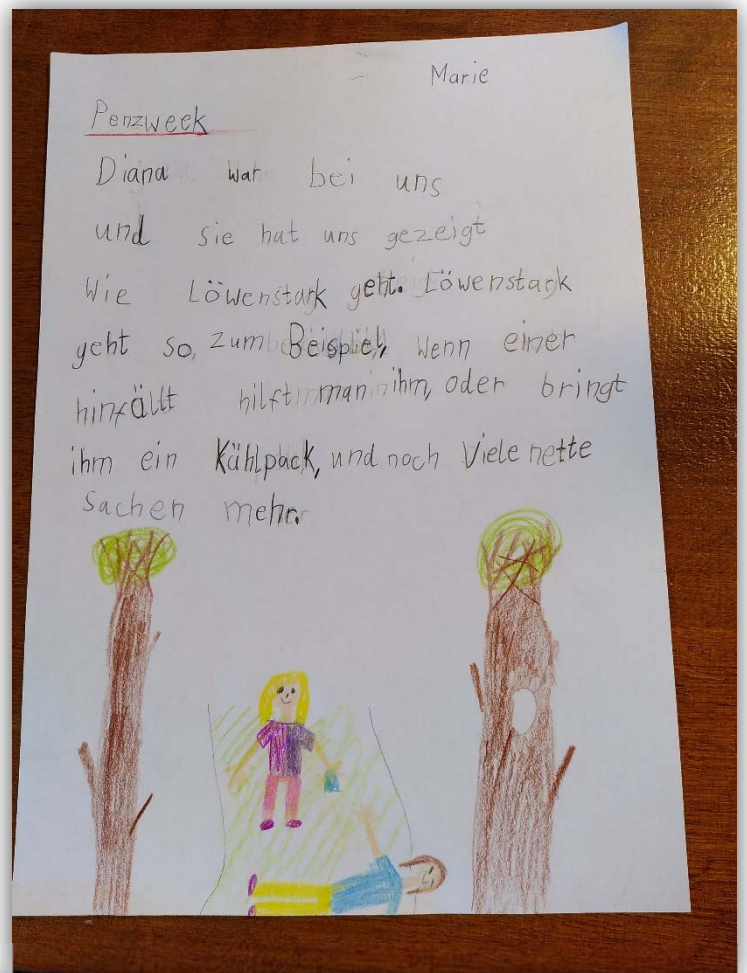 Marie
Penzweek
Diana war bei uns
und sie hat uns gezeigt
Wie Löwenstark geht. Löwenstark
geht so, zum Beispiel, wenn einer
hinfällt hilft man ihm, oder bringt
ihm ein Kühlpack, und noch Viele nette
Sachen mehr.